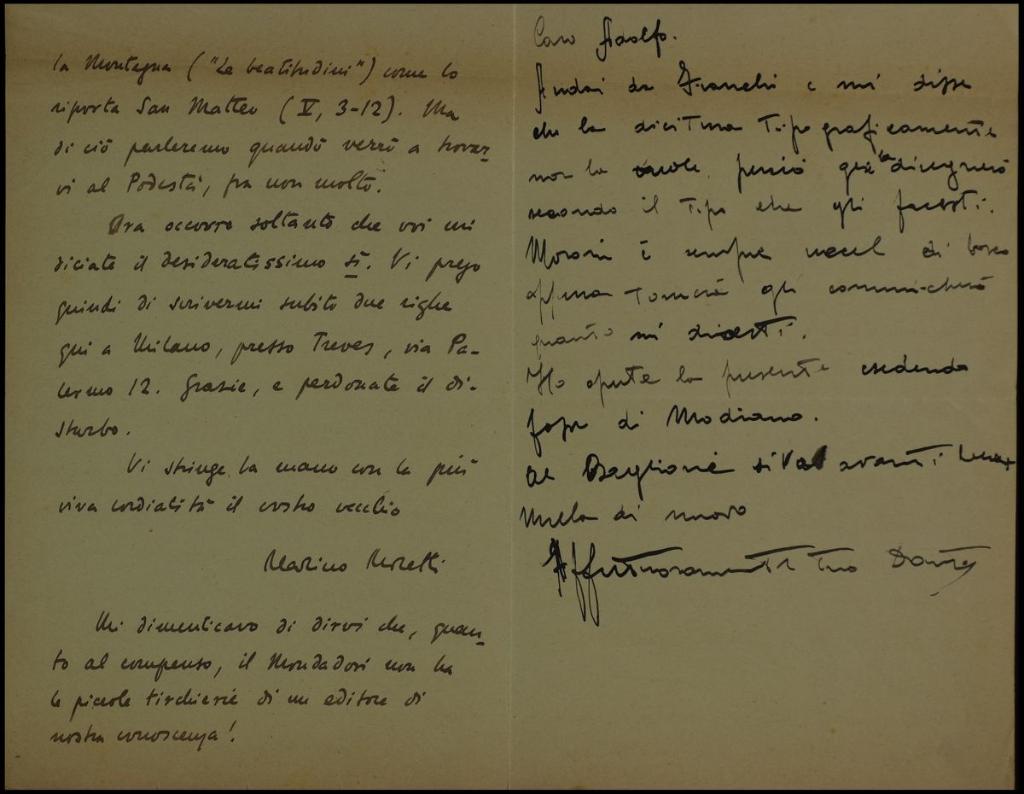 la Montagna ("Le beatitudini") come lo
riporta San Matteo (V, 3-12). Ma
di ciò parleremo quando verrò a trovar-
vi al Podestà, fra non molto.
Ora occorre soltanto che voi mi
diciate il desideratissimo sì. Vi prego
quindi di scrivermi subito due righe
qui a Milano, presso Treves, via Pa-
lermo 12. Grazie, e perdonate il di-
sturbo.
Vi stringe la mano con la più
viva cordialità il vostro vecchio
Marino Moretti
Mi dimenticavo di dirvi che, quan-
to al compenso, il Mondadori non ha
le piccole tirchierie di un editore di
nostra conoscenza!
Caro Adolfo.
Andai da Franchi e mi disse
che la dicitura Tipograficamente
non la vuole, perciò la disegnerò
secondo il Tipo che gli facesti.
è sempre uccel di bosco
appena Tornerà gli comunicherò
quanto mi dicesti.
Ho aperte la presente credendo
fosse di Modiano.
Al Baglioni si va avanti
Nulla di nuovo
Affettuosamente Tuo